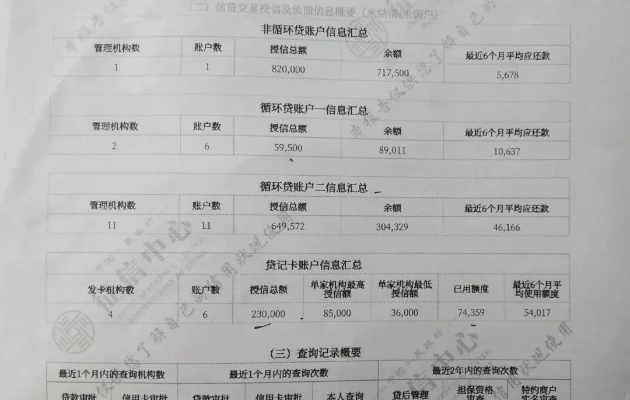 (二)信贷交易授信及负债信息概要(未结清/未销户)
非循环贷账户信息汇总
管理机构数 账户数 授信总额 余额 最近6个月平均应还款
1 1 820,000 717,500 5,678
循环贷账户一信息汇总
管理机构数 账户数 授信总额 余额 最近6个月平均应还款
2 6 59,500 89,011 10,637
循环贷账户二信息汇总
管理机构数 账户数 授信总额 余额 最近6个月平均应还款
11 11 649,572 304,329 46,166
贷记卡账户信息汇总
发卡机构数 账户数 授信总额 单家机构最高授信额 单家机构最低授信额 已用额度 最近6个月平均使用额度
4 6 230,000 85,000 36,000 74,359 54,017
(三)查询记录概要
最近1个月内的查询机构数 最近1个月内的查询次数 最近2年内的查询次数
贷款审批 信用卡审批 贷款审批 信用卡审批 本人查询 贷后管理 担保资格审查 特约商户实名审查